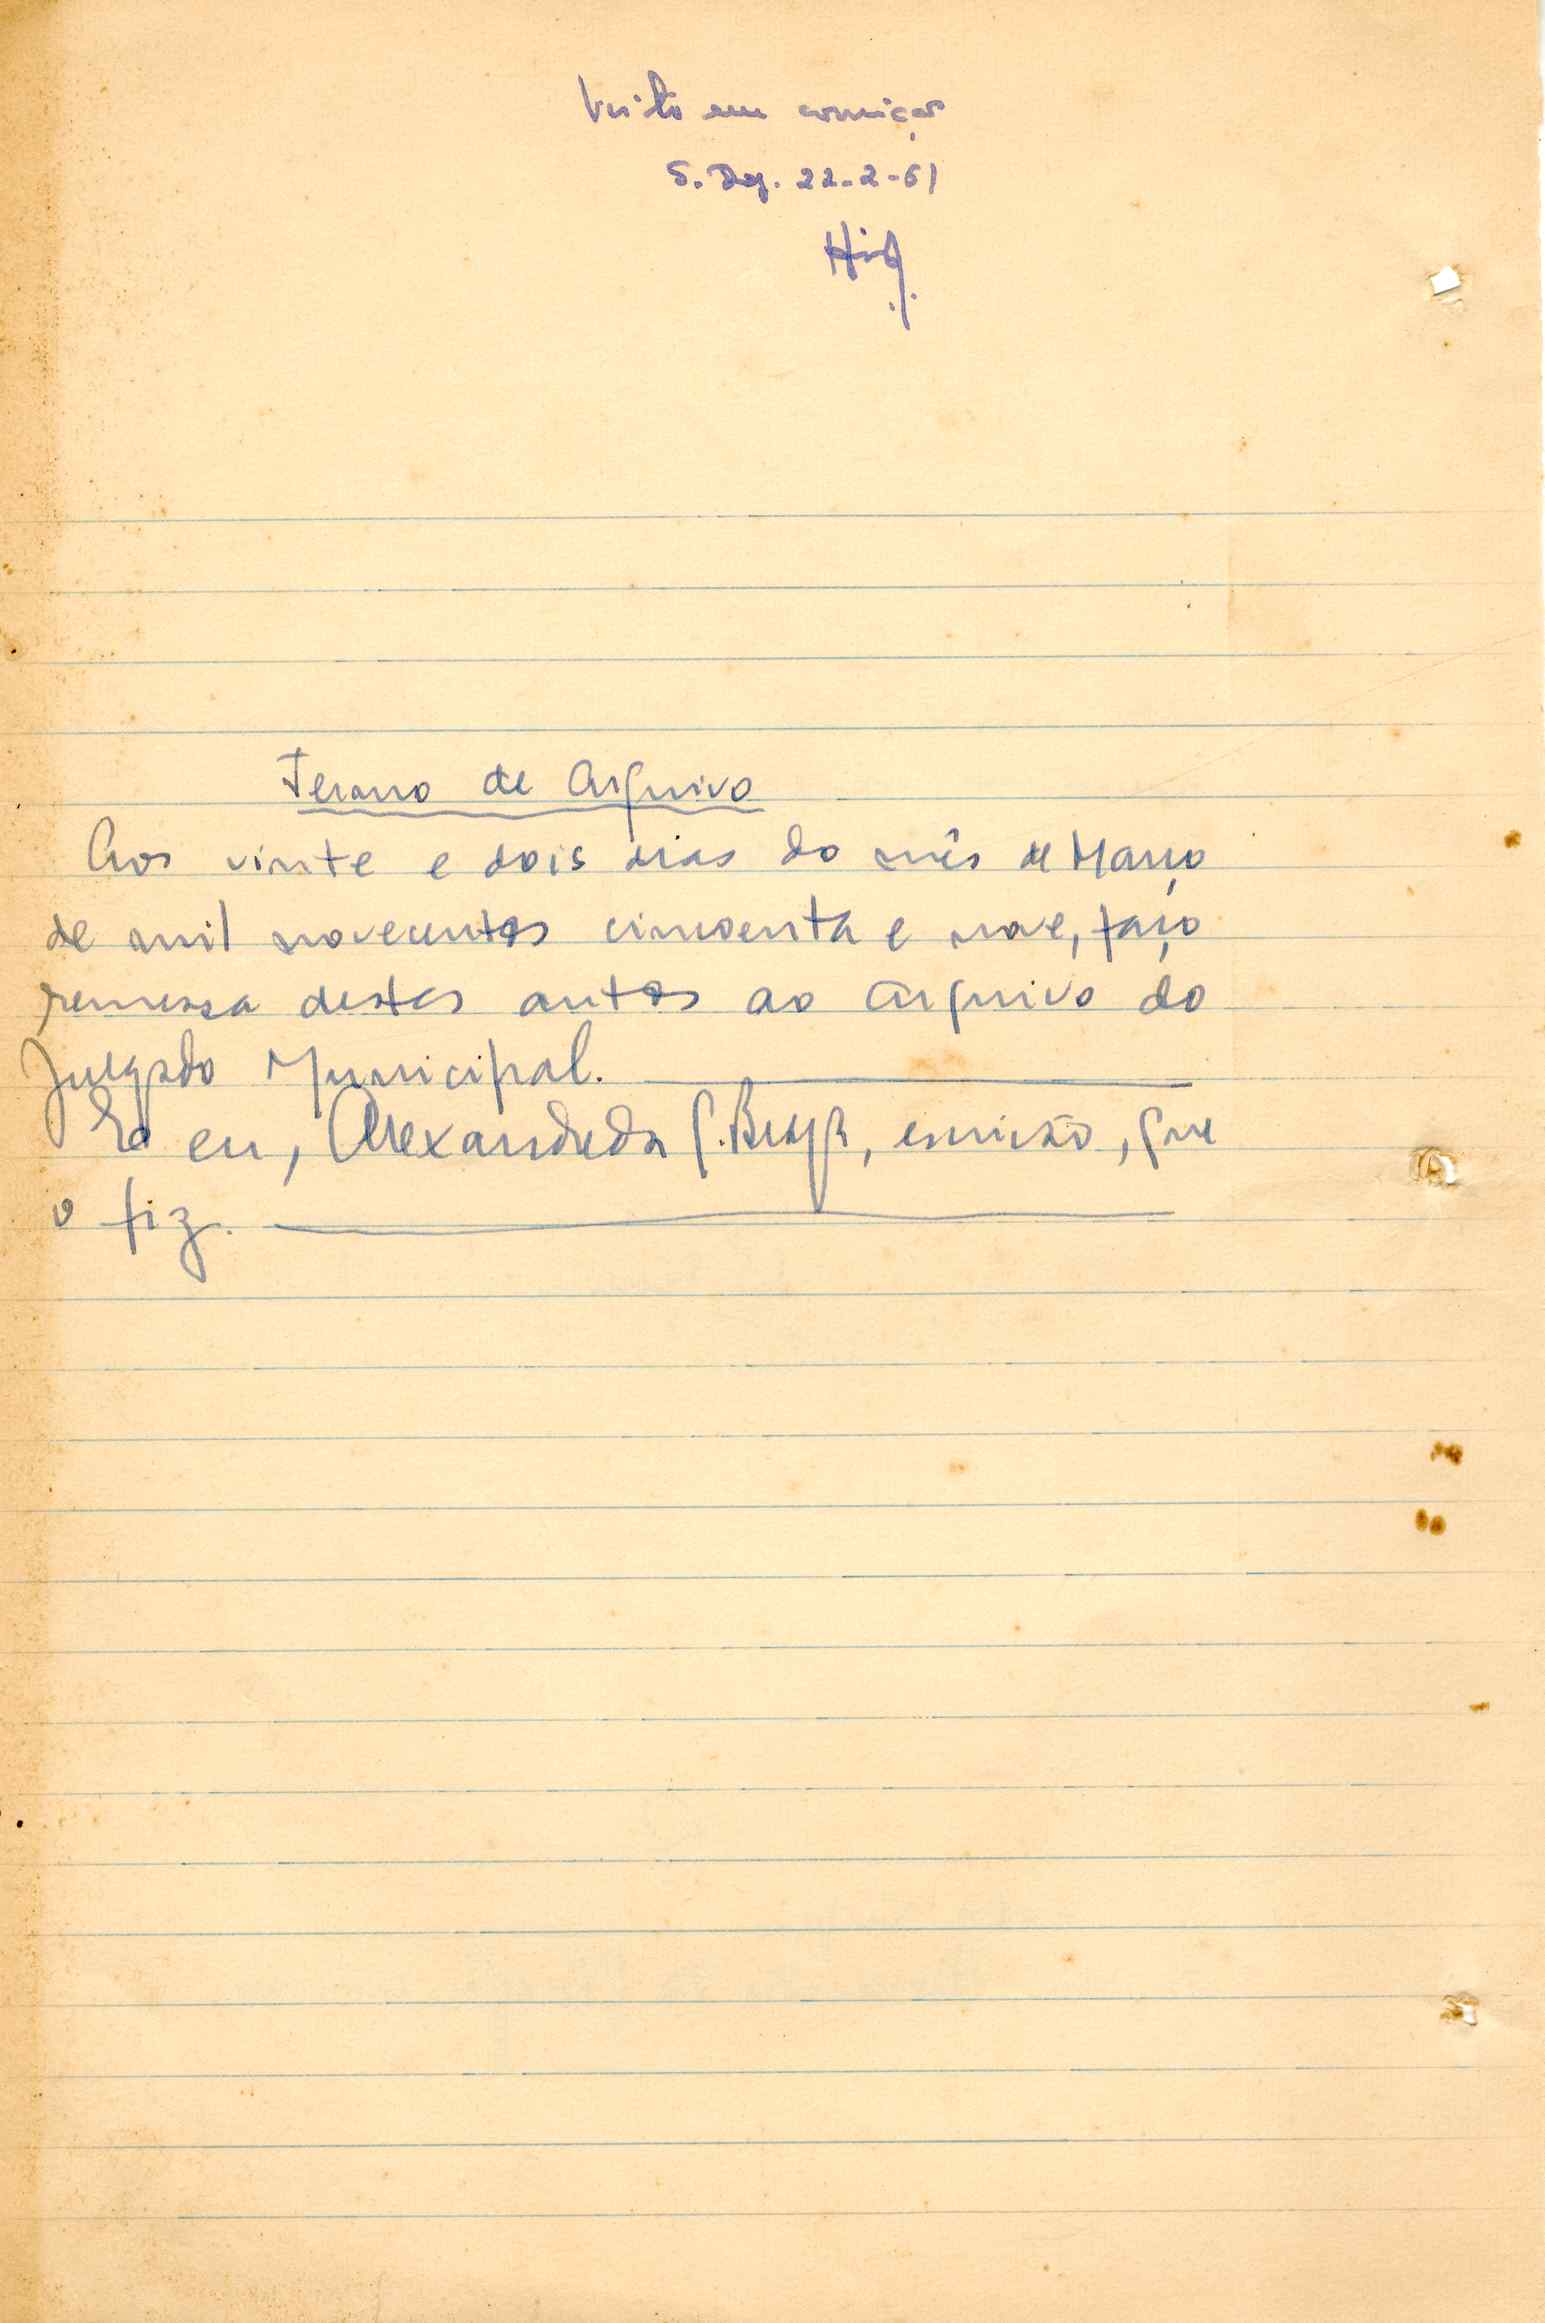 Visto em correição
S. Dgs. 22-2-61
Termo de Arquivo
Aos vinte e dois dias do mês de Março
de mil novecentos cincoenta e nove, faço
remessa destes autos ao arquivo do
Juizado Municipal.
E eu, Alexandre da S. Braga, escrivão, que
o fiz.